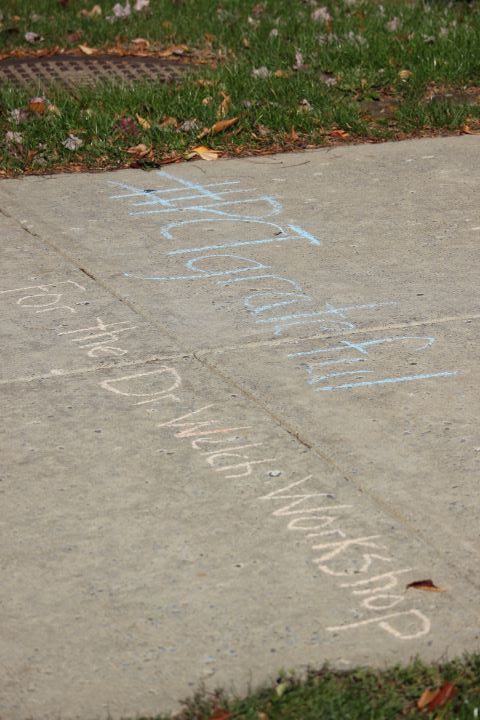 #PCTgrateful
For the Dr. Welch Workshop